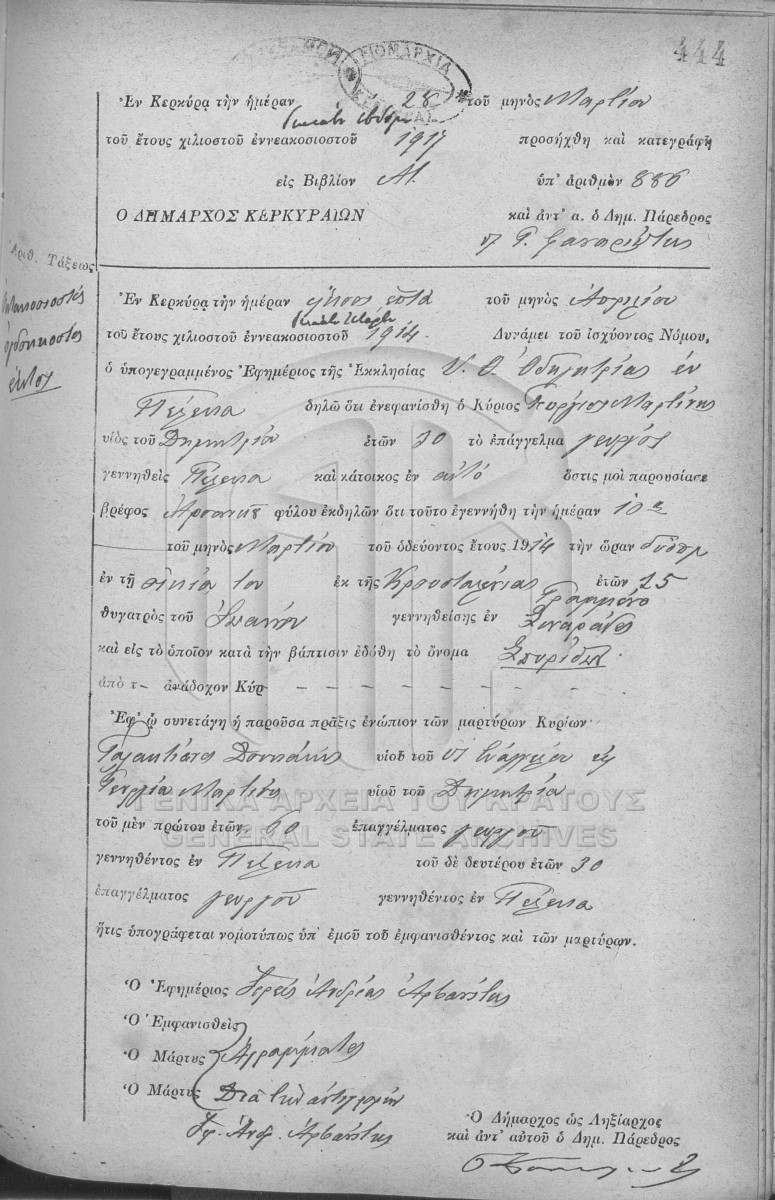 444
ΝΟΜΑΡΧΙΑ
Ἐν Κερκύρᾳ τὴν ἡμέραν 28 τοῦ μηνὸς Μαρτίου
τοῦ ἔτους χιλιοστοῦ ἐννεακοσιοστοῦ 1917 προσήχθη καὶ κατεγράφη
εἰς Βιβλίον Α1. ὑπ' ἀριθμὸν 886
Ο ΔΗΜΑΡΧΟΣ ΚΕΡΚΥΡΑΙΩΝ καὶ ἀντ' α. ὁ Δημ. Πάρεδρος
Ἀριθ. Τάξεως
ὀγδοηκοστὸς
ἕκτος
Ἐν Κερκύρᾳ τὴν ἡμέραν εἴκοσι ἑπτὰ τοῦ μηνὸς Ἀπριλίου
τοῦ ἔτους χιλιοστοῦ ἐννεακοσιοστοῦ 1914. Δυνάμει τοῦ ἰσχύοντος Νόμου,
ὁ ὑπογεγραμμένος Ἐφημέριος τῆς Ἐκκλησίας Υ. Θ. Ὁδηγητρίας ἐν
Πέλεκα δηλῶ ὅτι ἐνεφανίσθη ὁ Κύριος Γεώργιος Μαρτίνης
υἱὸς τοῦ Δημητρίου ἐτῶν 30 τὸ ἐπάγγελμα γεωργὸς
γεννηθεὶς Πέλεκα καὶ κάτοικος ἐν αὐτῷ ὅστις μοὶ παρουσίασε
βρέφος Ἀρσενικ φύλου ἐκδηλῶν ὅτι τοῦτο ἐγεννήθη τὴν ἡμέραν 10
τοῦ μηνὸς Μαρτίου τοῦ ὁδεύοντος ἔτους 1914 τὴν ὥραν
ἐν τῇ οἰκίᾳ του ἐκ τῆς Κρουσταλένιας ἐτῶν 25
θυγατρὸς τοῦ Ἰωάννου Γραμμένο γεννηθείσης ἐν Σιναράδες
καὶ εἰς τὸ ὁποῖον κατὰ τὴν βάπτισιν ἐδόθη τὸ ὄνομα Σπυρίδων
ἀπὸ τ- ἀνάδοχον Κύρ - - - - - - - -
Ἐφ' ᾧ συνετάγη ἡ παροῦσα πρᾶξις ἐνώπιον τῶν μαρτύρων Κυρίων
υἱοῦ τοῦ
Γεωργίου Μαρτίνης υἱοῦ τοῦ Δημητρίου
ΓΕΝΙΚΑ ΑΡΧΕΙΑ ΤΟΥ ΚΡΑΤΟΥΣ
τοῦ μὲν πρώτου ἐτῶν 60 ἐπαγγέλματος γεωργοῦ
GENERAL STATE ARCHIVES
γεννηθέντος ἐν Πέλεκα τοῦ δὲ δευτέρου ἐτῶν 30
ἐπαγγέλματος γεωργοῦ γεννηθέντος ἐν Πέλεκα
ἥτις ὑπογράφεται νομοτύπως ὑπ' ἐμοῦ τοῦ ἐμφανισθέντος καὶ τῶν μαρτύρων.
Ὁ Ἐφημέριος Ἱερεὺς Ἀνδρέας Ἀρβανίτης
Ὁ Ἐμφανισθεὶς
Ὁ Μάρτυς Ἀγράμματοι
Ὁ Μάρτυς Διὰ τὴν ἀντιγραφὴν
Ἱερ. Ἀνδ. Ἀρβανίτης
Ὁ Δήμαρχος ὡς Ληξίαρχος
καὶ ἀντ' αὐτοῦ ὁ Δημ. Πάρεδρος